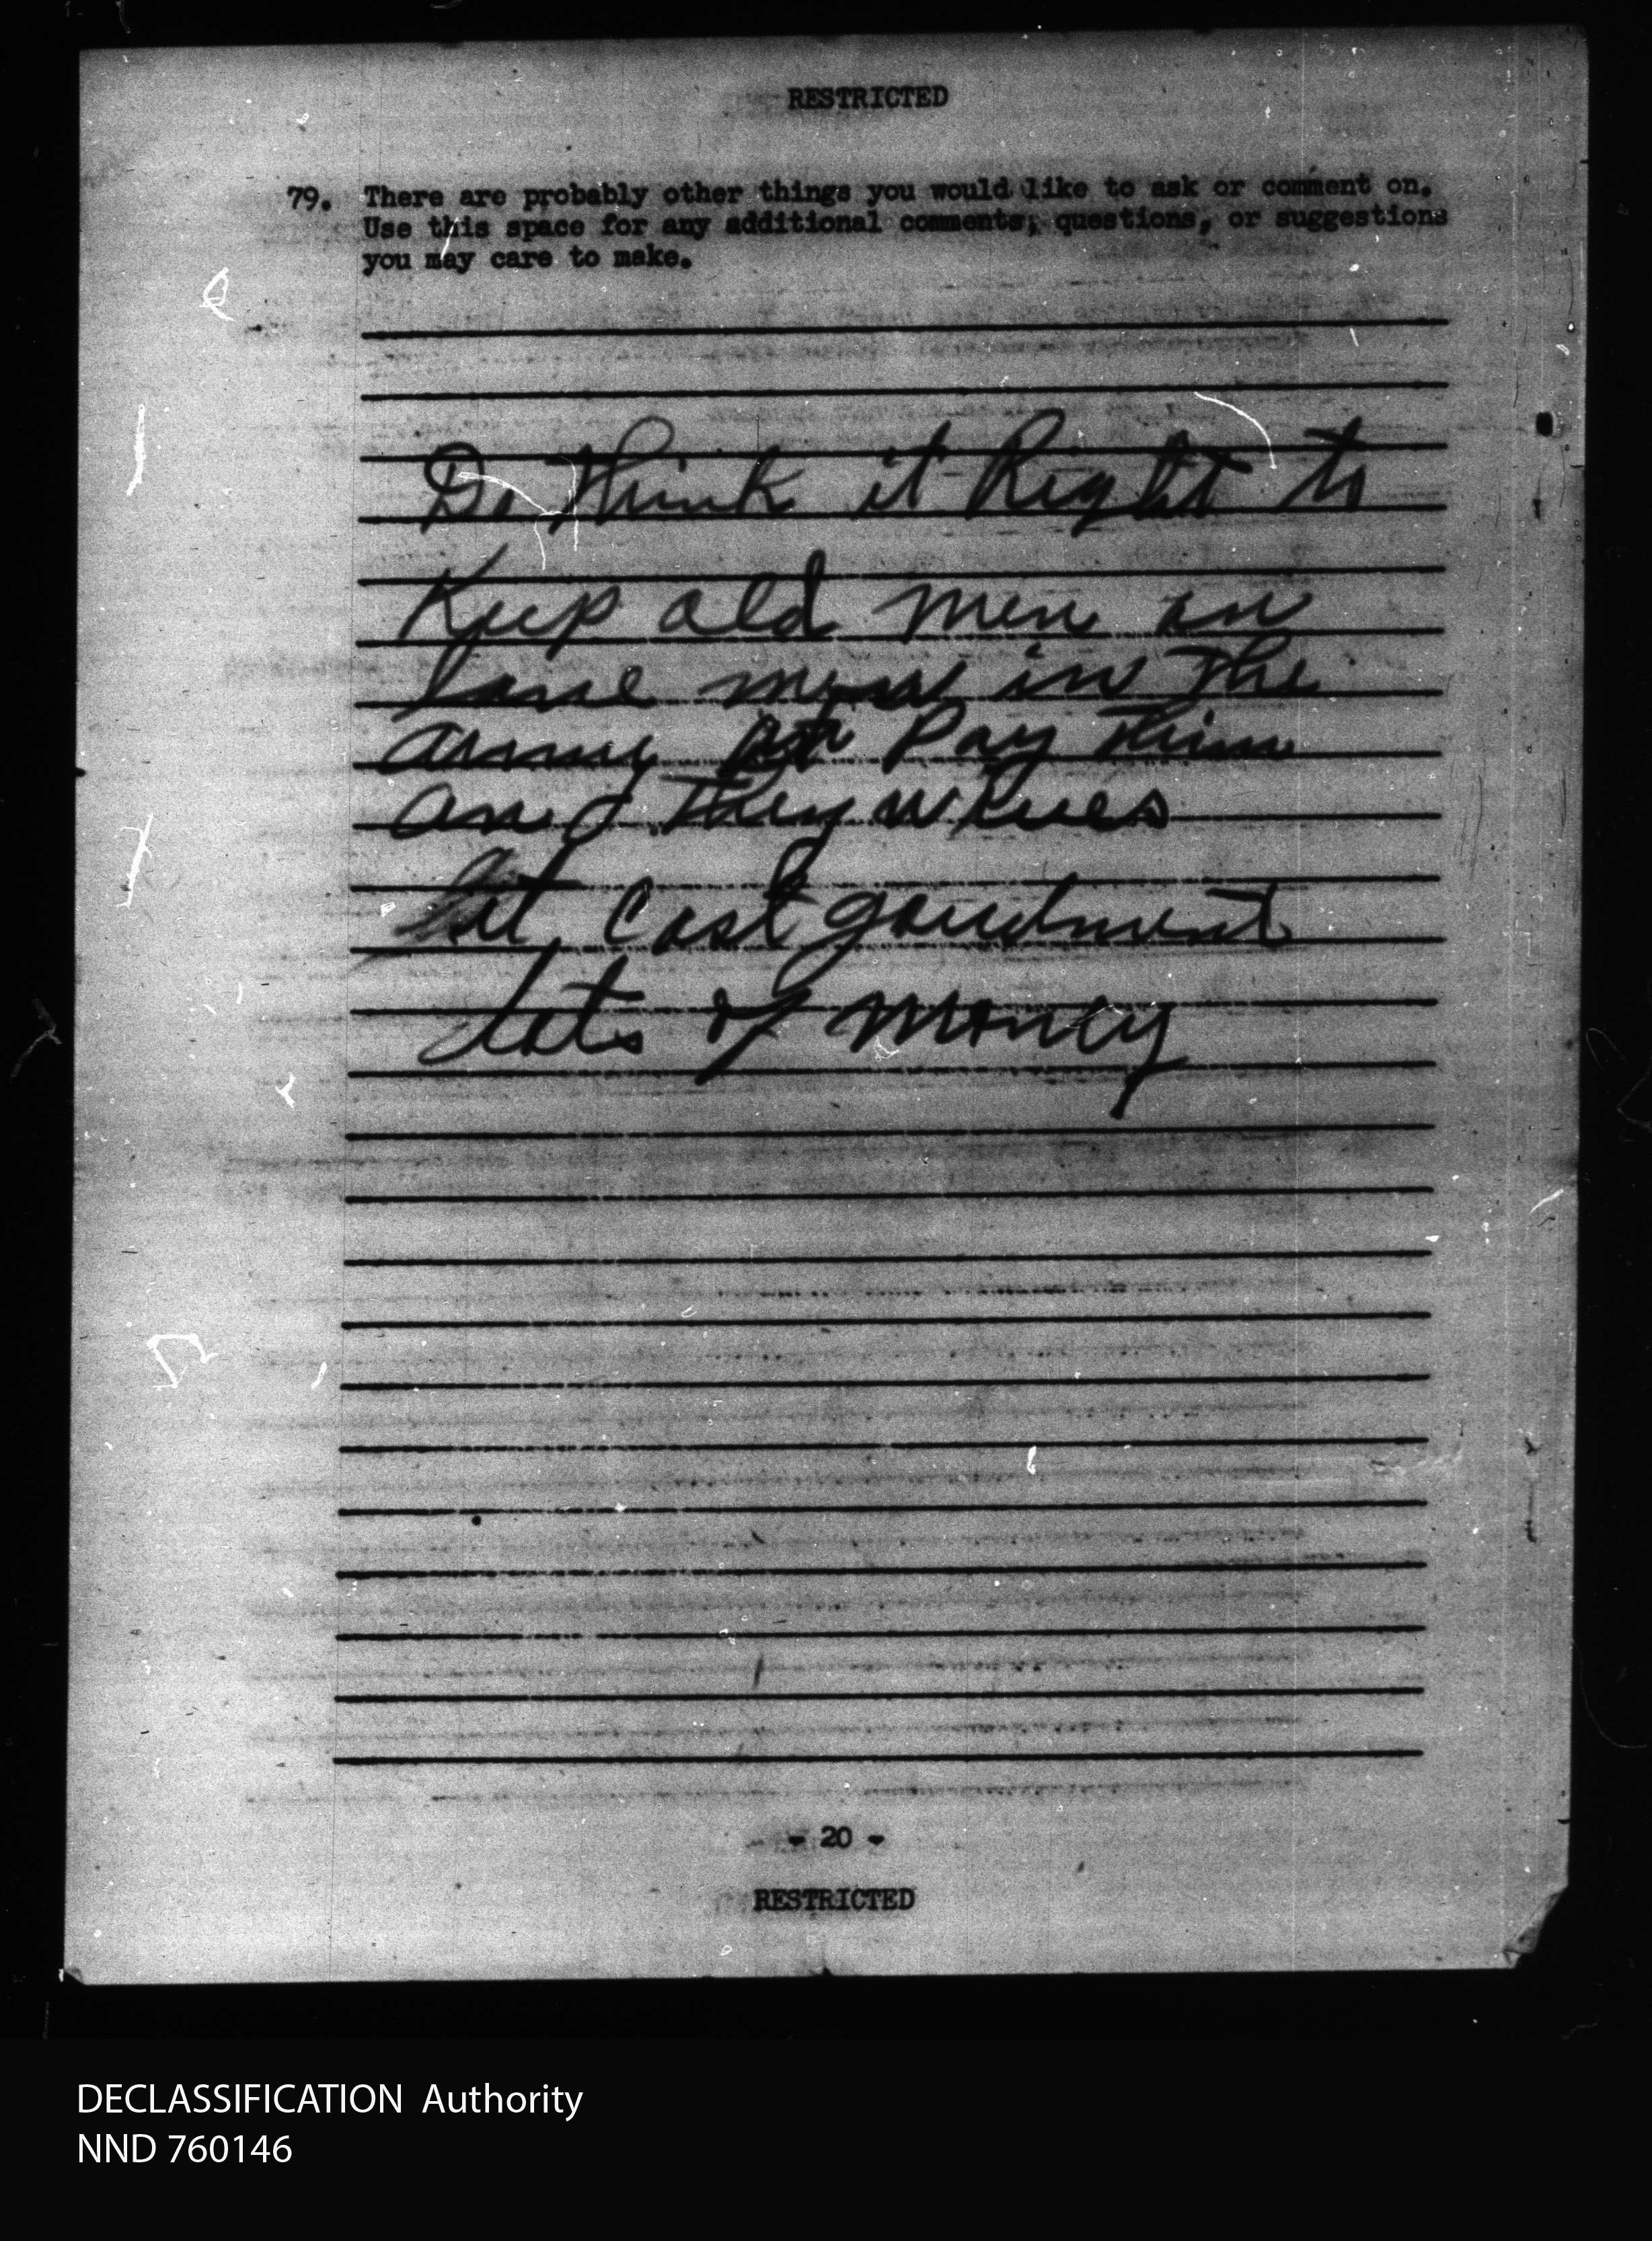 RESTRICTED
79. There are probably other things you would like to ask or comment on.
Use this space for any additional comments, questions, or suggestions
you may care to make.
Do think it Right to
Keep old men an
lame men in the
army Pay Them
and They wives
it, cost
lots of money
- 20 -
RESTRICTED
DECLASSIFICATION Authority
NND 760146